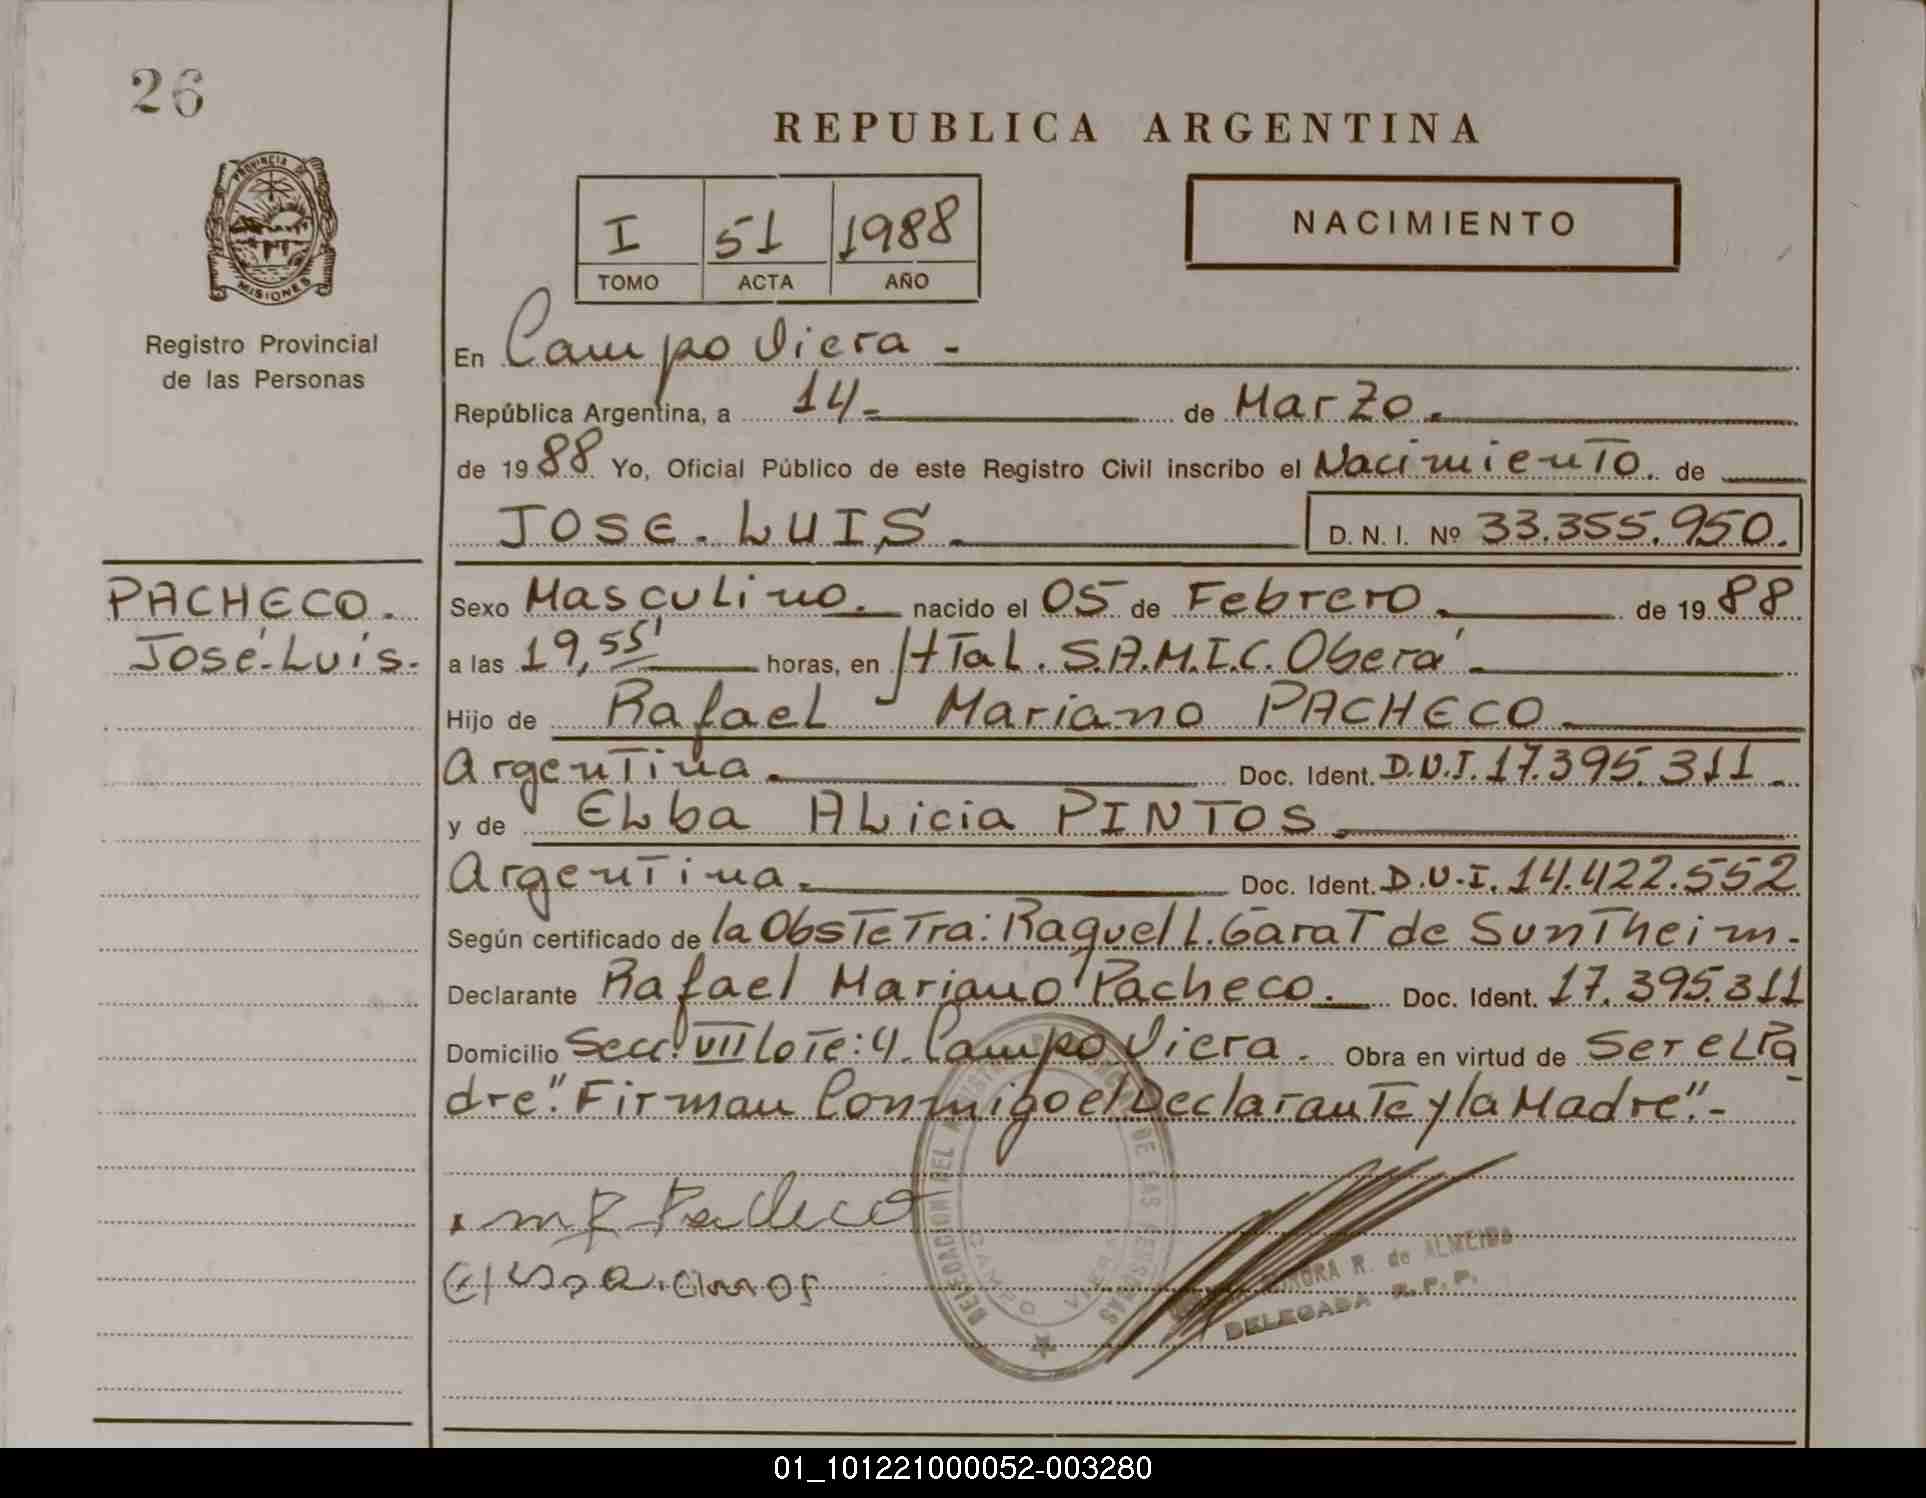 26
PROVINCIA DE
MISIONES
Registro Provincial
de las Personas
PACHECO.
José Luis.
REPUBLICA ARGENTINA
I 51 1988
TOMO ACTA AÑO
NACIMIENTO
En Campo Viera -
República Argentina, a 14- de Marzo.
de 1988 Yo, Oficial Público de este Registro Civil inscribo el Nacimiento. de
JOSE. LUIS. D. N. I. Nº 33.355.950.
Sexo Masculino. nacido el 05 de Febrero. de 1988
a las 19,55' horas, en HTal. S.A.M.I.C. Oberá.
Hijo de Rafael Mariano PACHECO.
Argentina. Doc. Ident. D.N.I. 17.395.311.
y de Elba Alicia PINTOS.
Argentina. Doc. Ident. D.N.I. 14.422.552
Según certificado de la Obstetra: Raquel L. Garat de Suntheim.
Declarante Rafael Mariano Pacheco. Doc. Ident. 17.395.311
Domicilio Secc. VII Lote: 4. Campo Viera. Obra en virtud de Ser el Pa
dre." Firman Conmigo el Declarante y la Madre".-
M R Pacheco
R. de ALMEIDA
DELEGADA R.P.P.
01_101221000052-003280